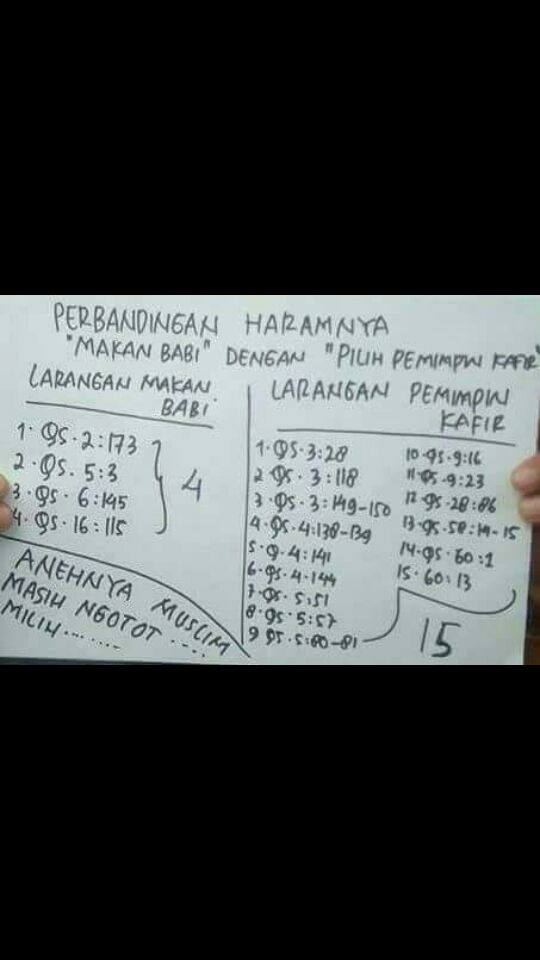 PERBANDINGAN HARAMNYA
"MAKAN BABI" DENGAN "PILIH PEMIMPIN KAFIR"
LARANGAN MAKAN
BABI
1. QS. 2:173
2. QS. 5:3
3. QS. 6:145
4. QS. 16:115
4
ANEHNYA MUSLIM
MASIH NGOTOT ....
MILIH.......
LARANGAN PEMIMPIN
KAFIR
1. QS. 3:28
2 QS. 3:118
3. QS. 3:149-150
4. QS. 4:138-139
5. Q. 4:141
6. QS. 4.144
7. QS. 5:51
8. QS 5:57
9 QS. 5:80-81
10. QS. 9:16
11. QS. 9:23
12. QS. 28:86
13. QS. 58:14-15
14. QS. 60:1
15. 60:13
15